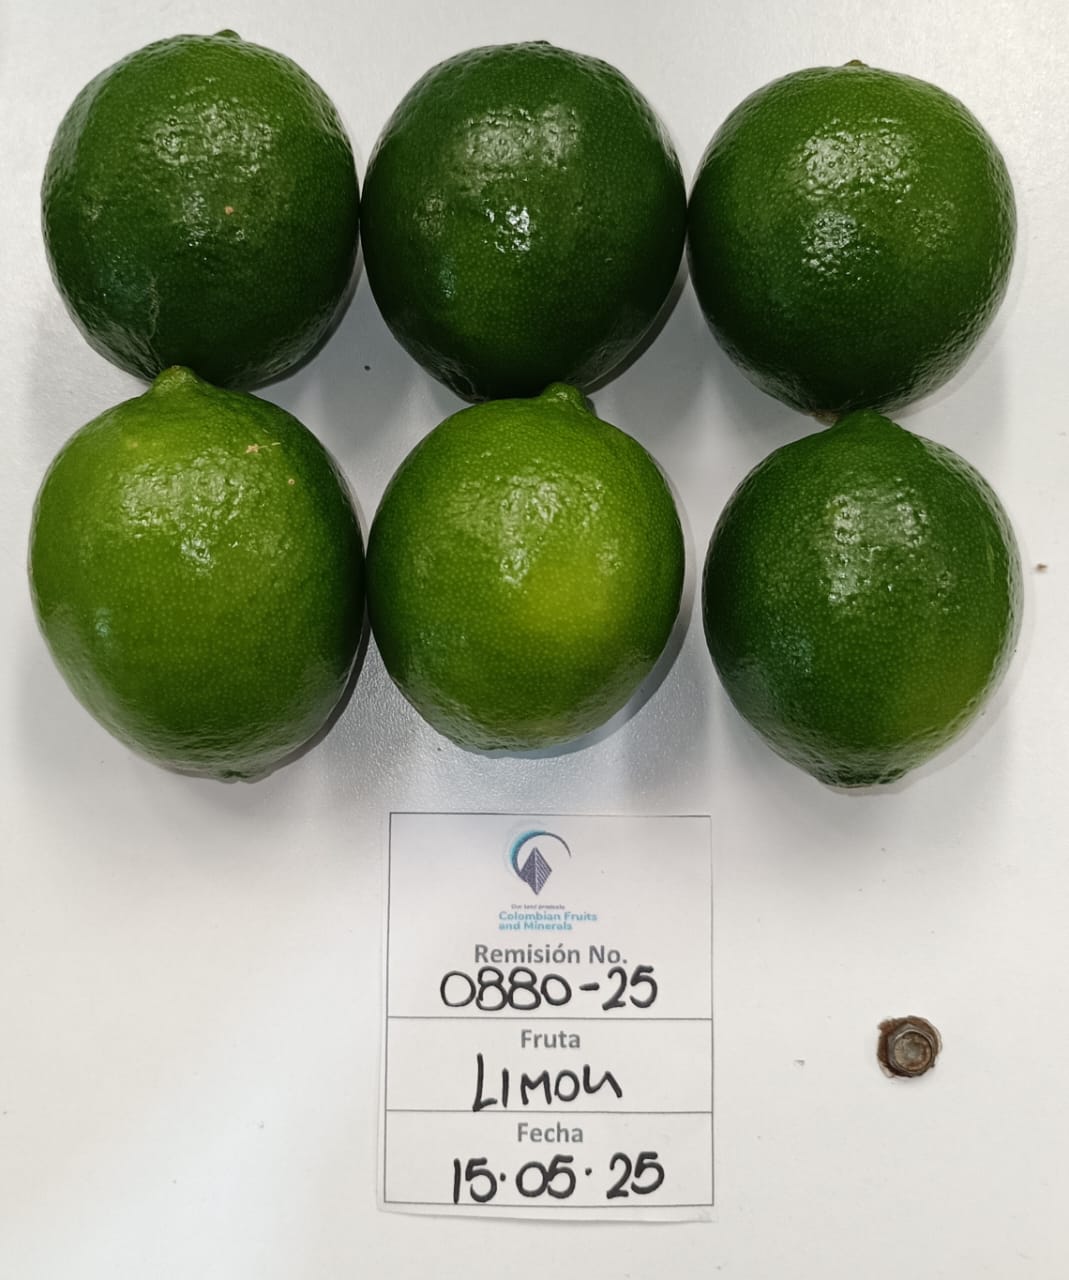 Our land products
Colombian Fruits
and Minerals
Remisión No.
0880-25
Fruta
LIMON
Fecha
15·05·25